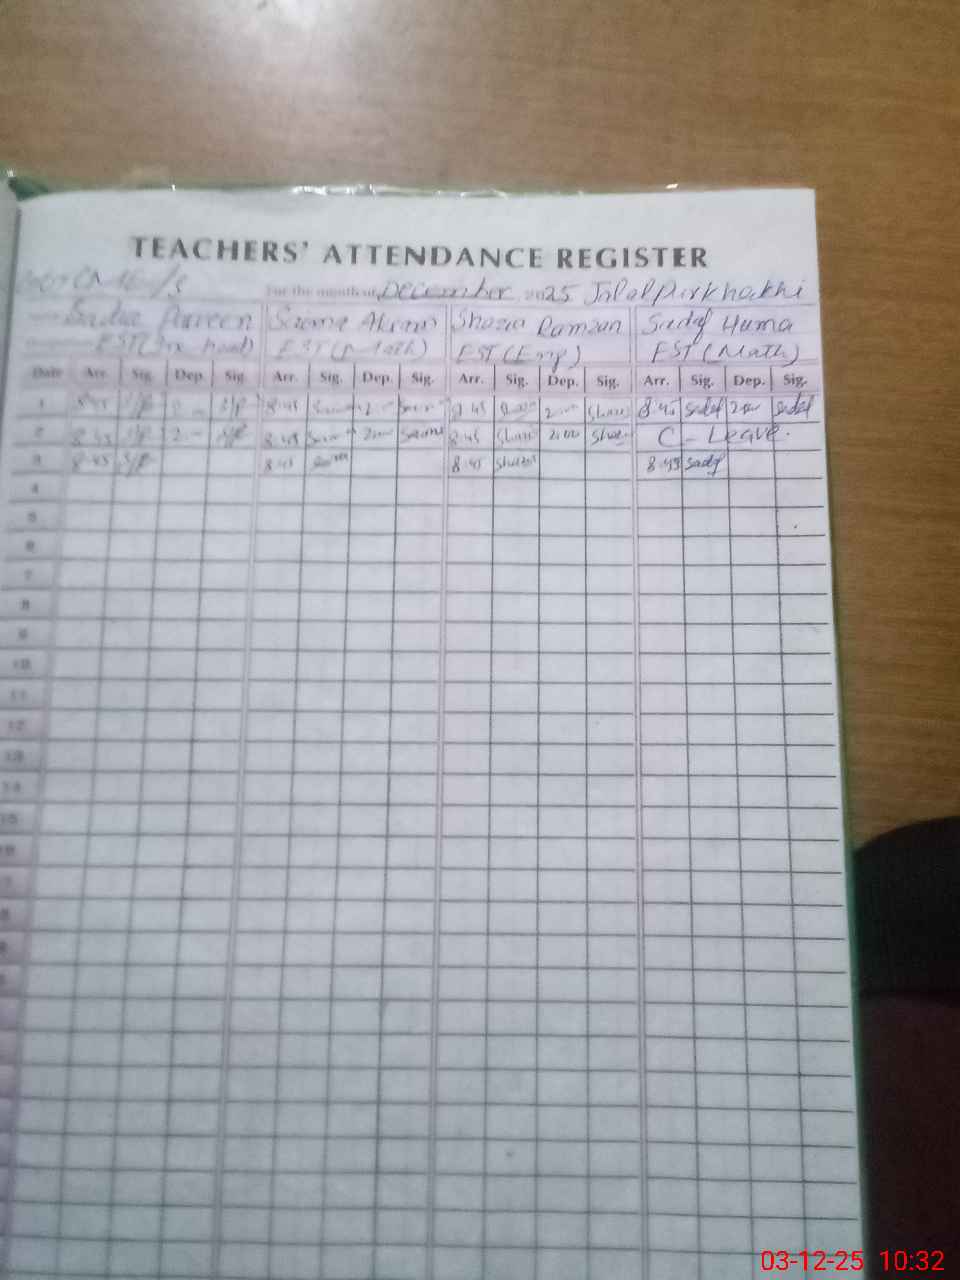 TEACHERS' ATTENDANCE REGISTER
For the month of December 2025 Jalalpurkhakhi
Sadia Parveen Saema Akram Shazia Ramzan Sadaf Huma
EST (Math) EST (Eng) EST (Math)
Date Arr. Sig. Dep. Sig. Arr. Sig. Dep. Sig. Arr. Sig. Dep. Sig. Arr. Sig. Dep. Sig.
1 S/P S/P 8:45 2:00 8:45 2:00 Shazia 8:45 Sadaf 2:00 Sadaf
2 8:45 S/P 2:00 S/P 8:45 2:00 Saema 8:45 Shazia 2:00 Shazia C - Leave.
3 8:45 S/P 8:45 8:45 Shazia 8:45 Sadaf
4
5
6
7
8
9
10
11
12
13
14
15
03-12-25 10:32